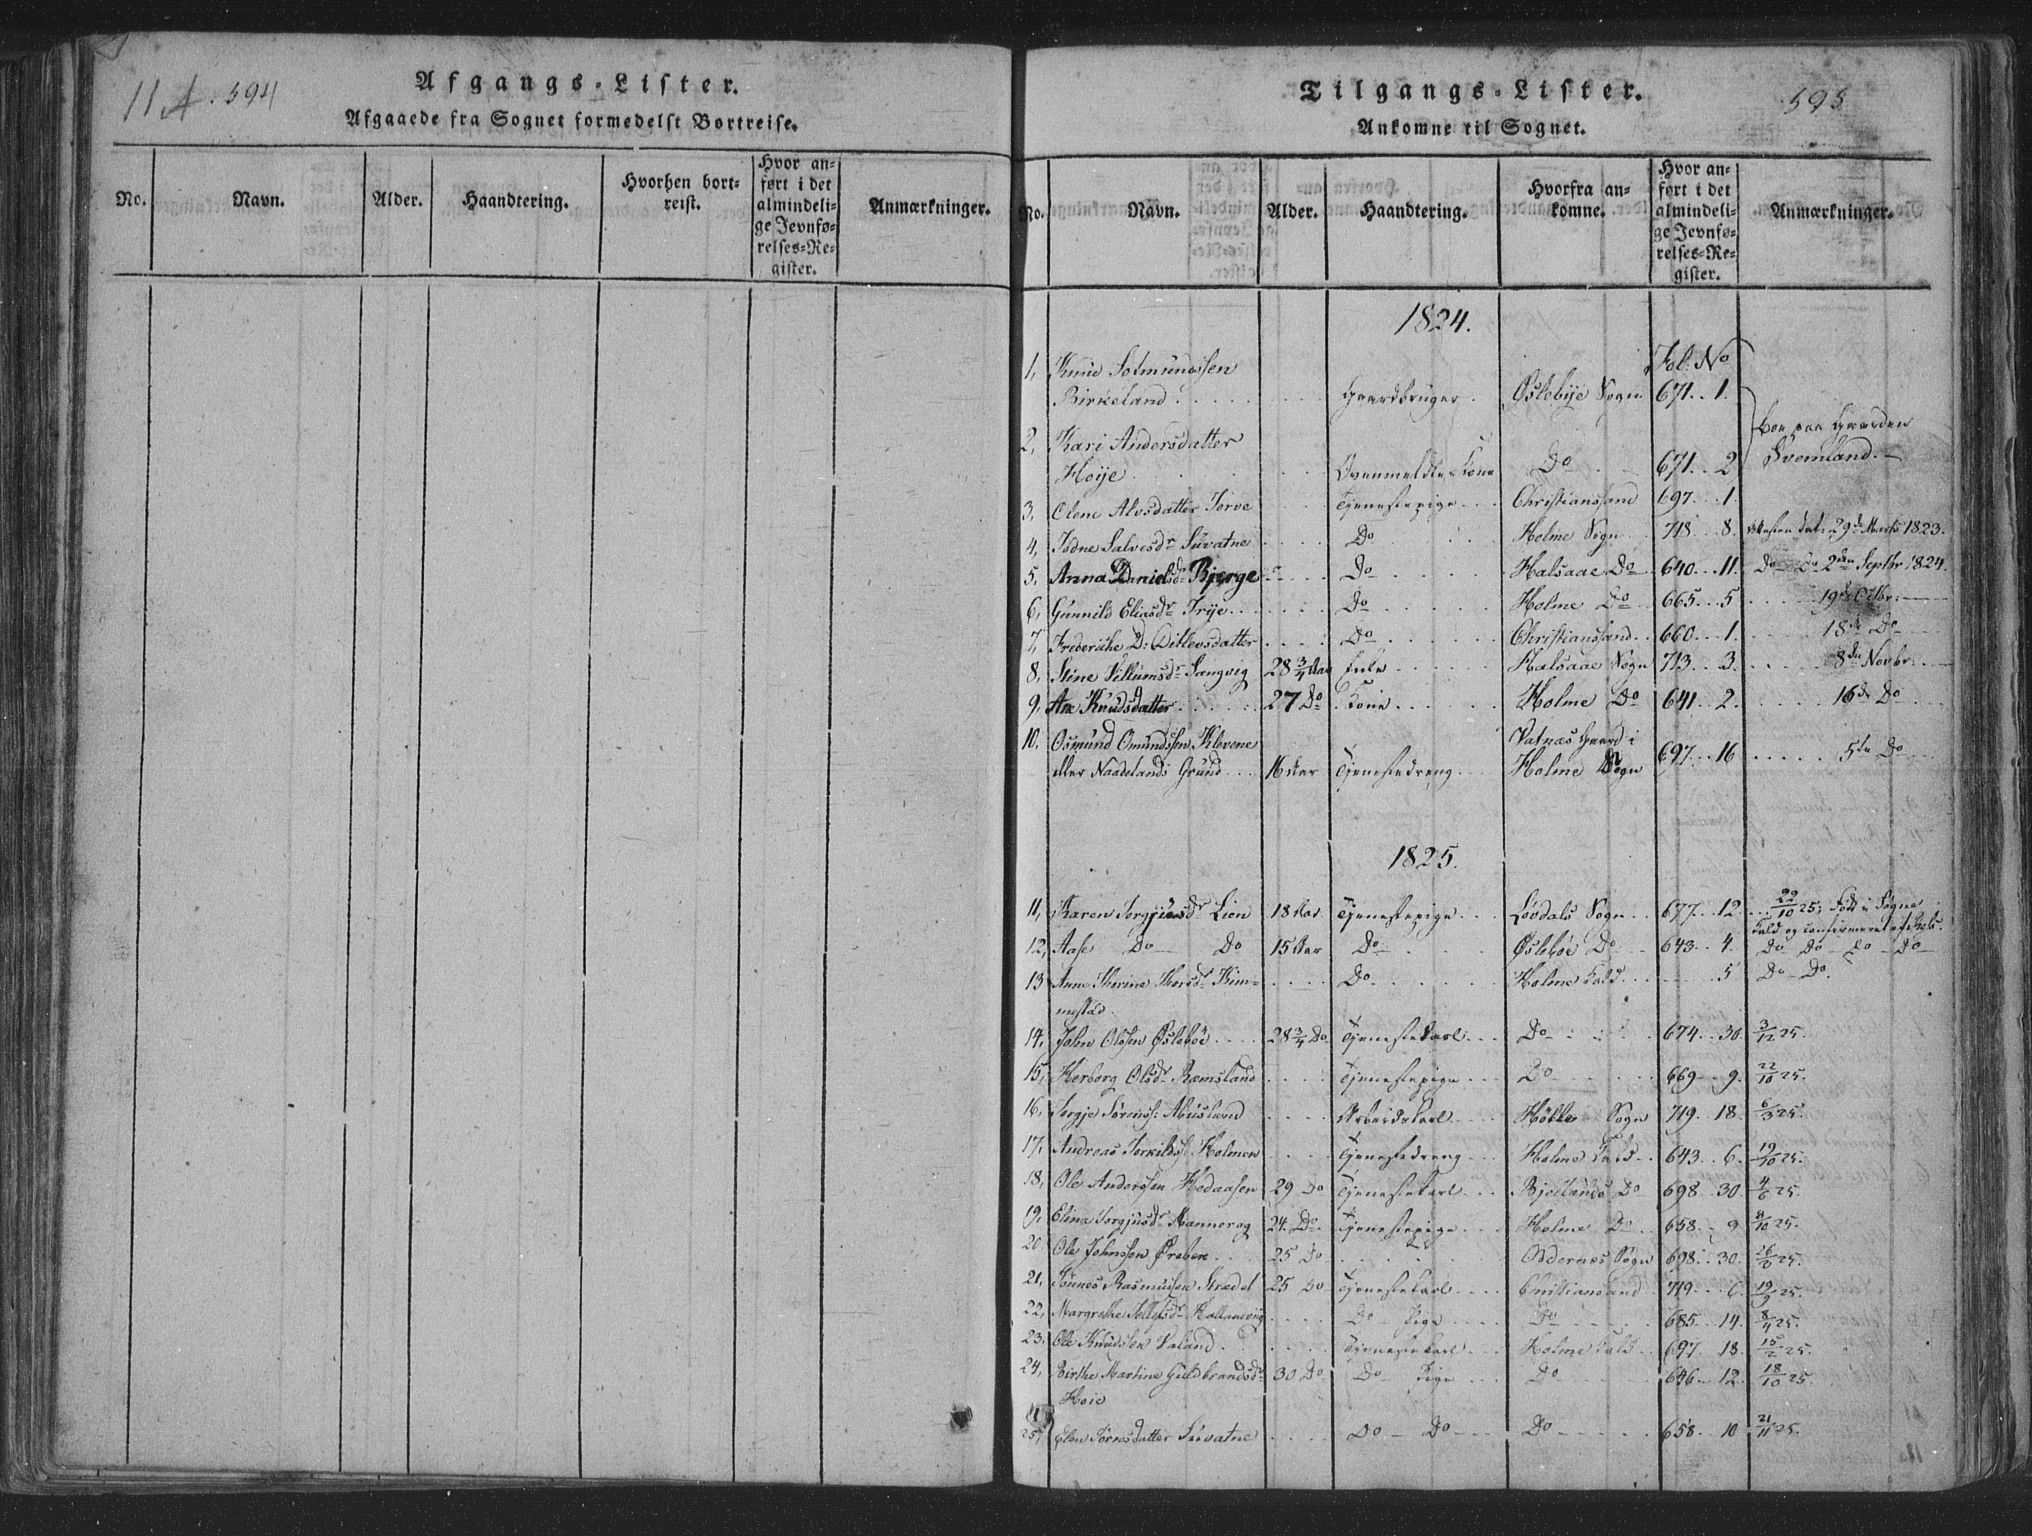 11 A. 594
Afgangs-Lister.
Afgaaede fra Sognet formedelst Bortreise.
No. Navn. Alder. Haandtering. Hvorhen bortreist. Hvor anført i det almindelige Jevnførelses-Register. Anmærkninger.
Tilgangs-Lister. 595
Ankomne til Sognet.
No. Navn. Alder. Haandtering. Hvorfra ankomne. Hvor anført i det almindelige Jevnførelses-Register. Anmærkninger.
1824.
Fol: No
1, Knud
Birkeland Gaardbruger Øslebye Sogn 671. 1.
2, Kari Andersdatter boe paa Gaarden
Høÿe Kone Do 671. 2 Svemland.
3, Olene Alvsdatter Tjenestepige Christianssand 697. 1.
4, Salvesdr Suvatne Do Holme Sogn 718. 8. 29de Marts 1823.
5, Anna Danielsdr Bjerge Do Halsaae Do 640. 11. Do 2den Septbr 1824.
6, Gunnild Eliasdr Do Holme Do 665. 5 19de Octbr.
7, D: Ditlevsdatter Do Christianssand 660. 1. 18de Do
8, Stine Sangvig 28 3/4 Aar Halsaae Sogn 713. 3. 8de Novbr.
9, Ane Knudsdatter 27 Do Kone Holme Do 641. 2. 16de Do
10, Osmund Omundssen Klevene Vatnas Gaard i
eller Naadelands Grund 16 Aar Tjenestedreng Holme Sogn 697. 16 5te Do
1825.
11, Karen Lien 18 Aar Tjenestepige Løvdals Sogn 677. 12 22/10 25, Født i Søgne
Kald og confirmeret
12, Aase Do Do 15 Aar Do Øslebøe Do 643. 4. Do Do Do Do
13 Anne Kim-
mestad Do Holme Kald 5 Do Do.
14, John Olssen Øslebøe 28 3/4 Do Tjenestekarl Do 674. 30. 3/12 25.
15, Herborg Olsdr Ramsland Tjenestepige Do 669 9. 22/10 25.
16, Tergje Sørenss: Abusland Arbeidskarl Sogn 719. 18. 6/3 25.
17, Andreas Torkildss: Holmen Tjenestedreng Holme Kald 643. 6. 19/10 25.
18, Ole Anderssen 29 Do Tjenestekarl Bjellands Do 698. 30. 4/6 25.
19, Elina 24. Do Tjenestepige Holme Do 658. 9 /10 25.
20 Ole Johnssen 25 Do Oddernes Sogn 698. 30.
21, Tønnes Rasmussen 25 Do Tjenestekarl Christianssand 719. 6. 19/9 25.
22, Margrethe Do Pige Do 685. 14. 8/4 25.
23, Ole Knudssen Valand Tjenestekarl Holme Kald 697. 18. 15/2 25.
24, Birthe Martine Guldbrandsdr 30 Do Do Pige Do 646. 12. 18/10 25.
Høie
25, Elen Suvatne Do Do Do 658. 10 21/11 25.